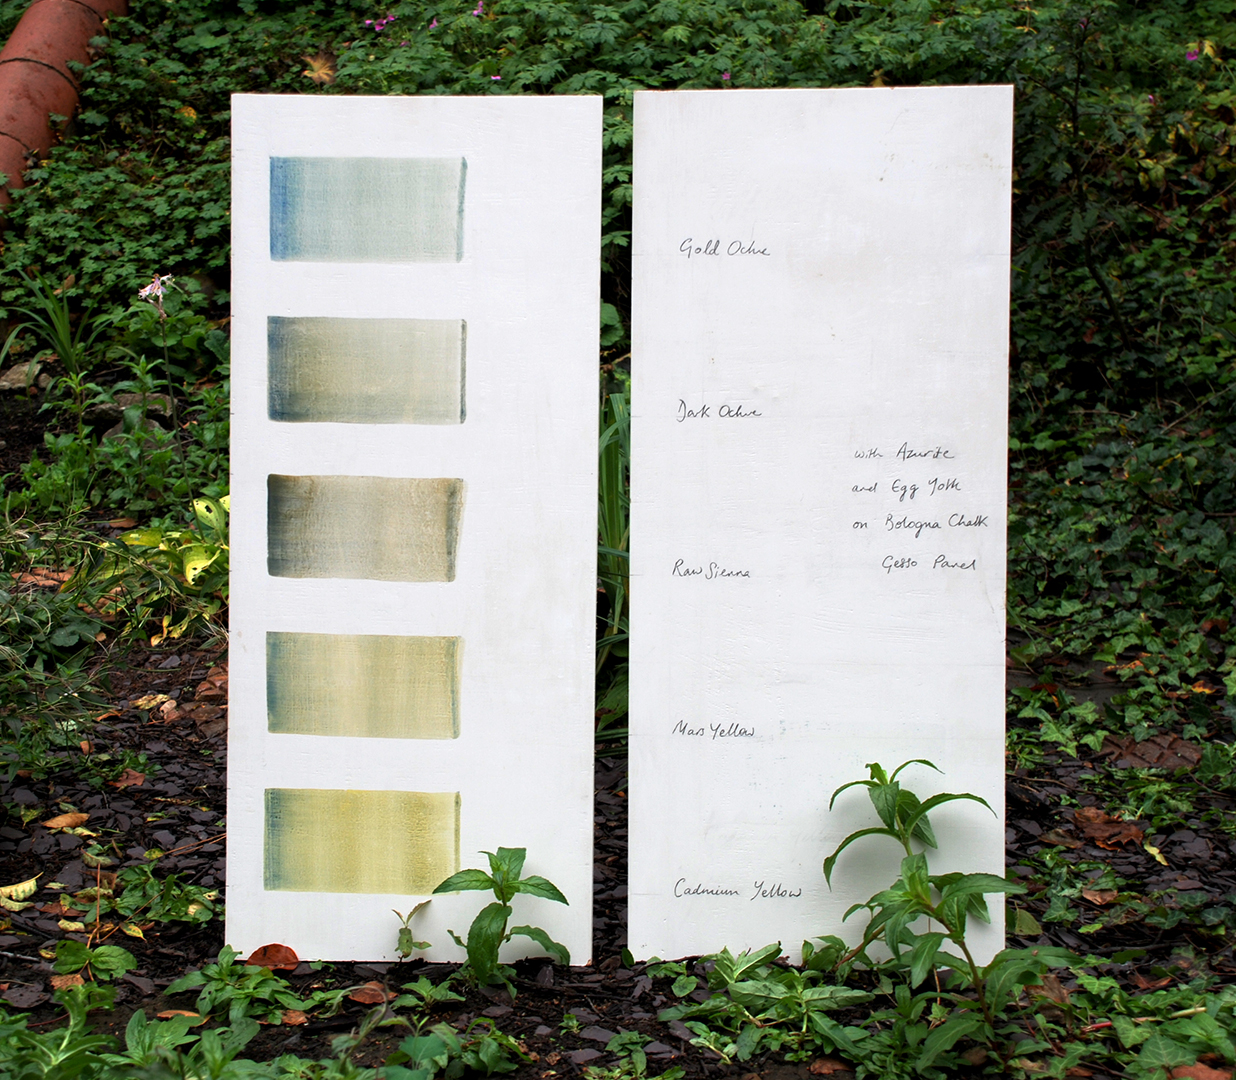 Gold Ochre
Dark Ochre
with Azurite
and Egg Yolk
on Bologna Chalk
Gesso Panel
Raw Sienna
Mars Yellow
Cadmium Yellow